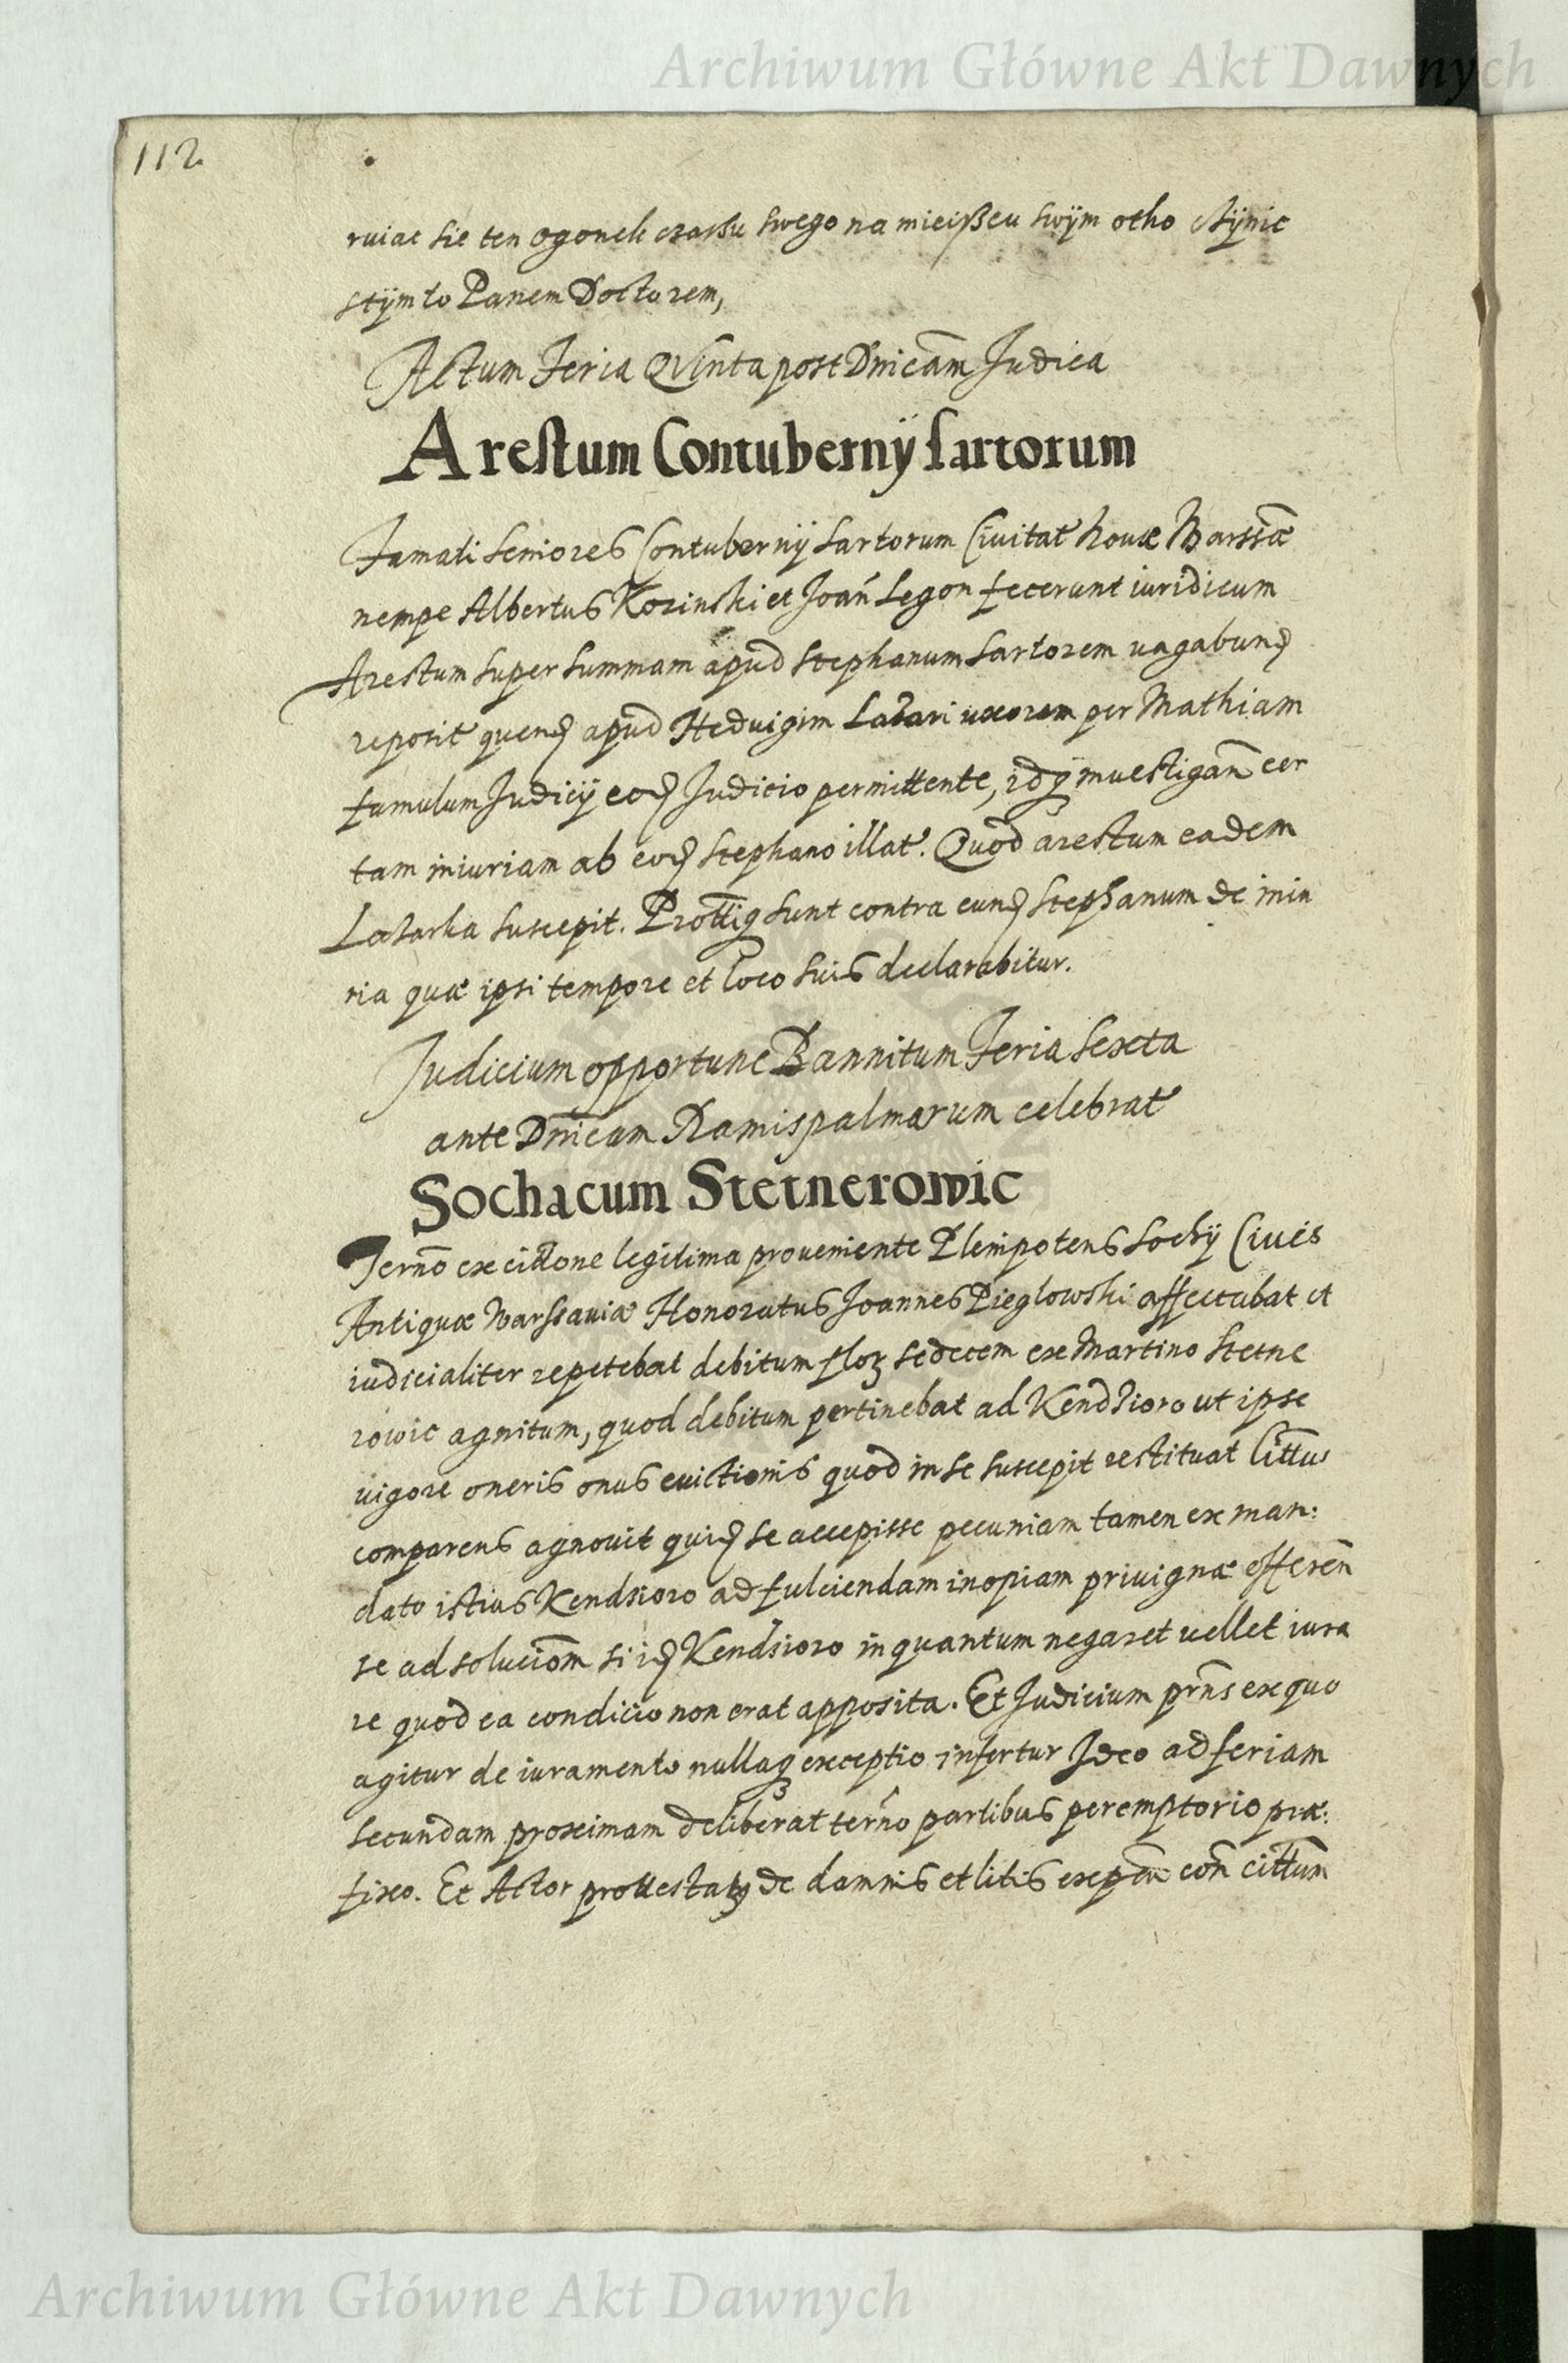 Archiwum Główne Akt Dawnych
112.
ruiac sie ten ogonek czassu swego na mieißcu swÿm otho cÿnie
stÿm to Panem Doctorem,
Actum Feria Qvinta post Dnicam Judica
Arestum Contubernÿ sartorum
Famati seniores Contubernÿ sartorum Ciuitat nouæ Warssæ
nempe Albertus Kozinski et Joan Legon fecerunt iuridicum
Arestum super summam apud Stephanum sartorem uagabun
reposit quen apud Heduigim Lazari uxorem per Mathiam
famulum Judicÿ eo Judicio permittente, idq inuestigan cer
tam iniuriam ab eo Stephano illat. Quod arestum eadem
Lazarka suscepit. sunt contra eun Stephanum de iniu
ria quæ ipsi tempore et loco suis declarabitur.
Judicium opportune Bannitum Feria Sexta
ante Dnicam Ramispalmarum celebrat
Sochacum Stetnerowic
Termo ex cittone legitima proueniente Plenipotens Sochÿ Ciuis
Antiquæ Warssauiæ Honoratus Joannes Pieglowski affectabat et
iudicialiter repetebat debitum floz sedecem ex Martino Stetne
rowic agnitum, quod debitum pertinebat ad Kendzioro ut ipse
uigore oneris onus euictionis quod in se suscepit restituat Cittus
comparens agnouit qui se accepisse pecuniam tamen ex man:
dato istius Kendsioro ad fulciendam inopiam priuignæ offeren
se ad soluciom si i Kendsioro inquantum negaret uellet iura
re quod ea condicio non erat apposita. Et Judicium prns ex quo
agitur de iuramento nullaq exceptio infertur Ideo ad feriam
secundam proximam deliberat termo partibus peremptorio præ:
fixo. Et Actor protestatq de damnis et litis expen con cittum
Archiwum Główne Akt Dawnych